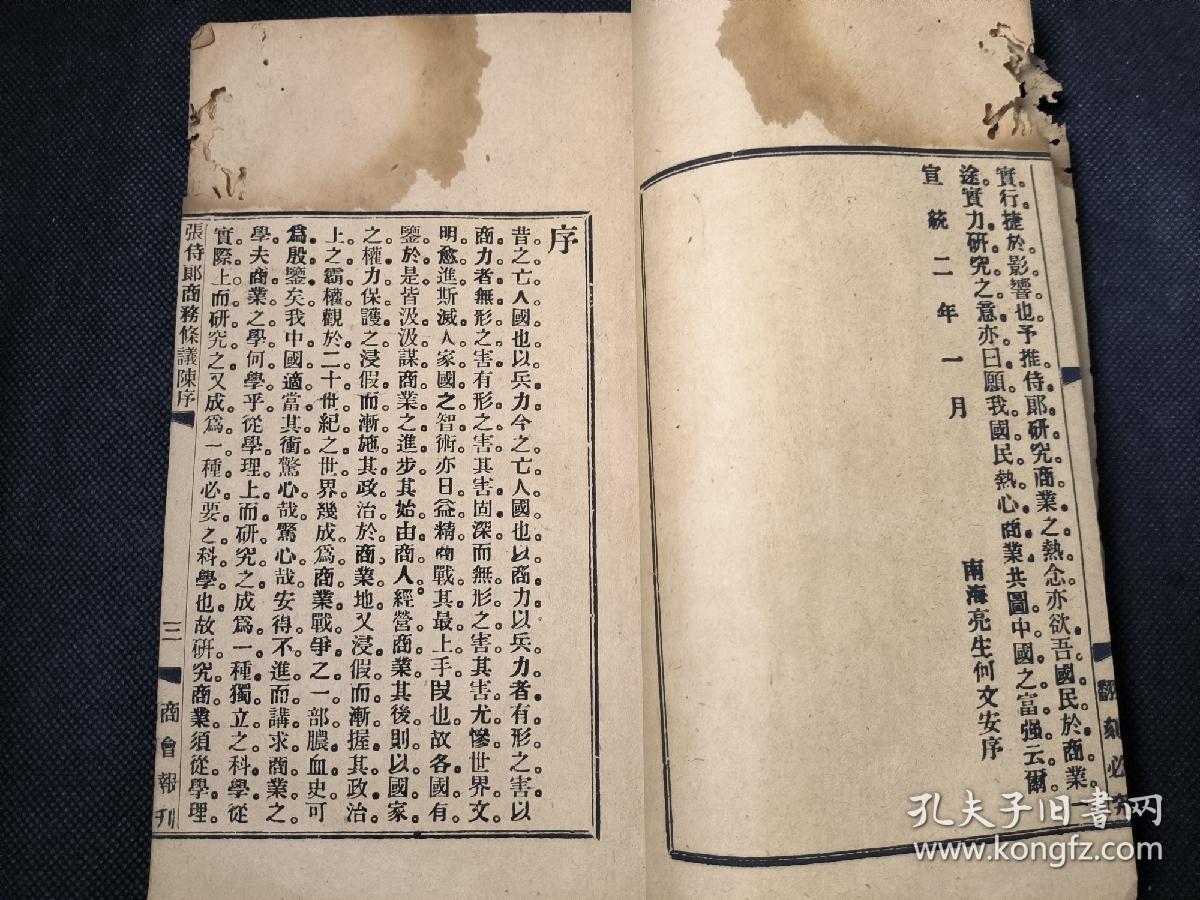 實行捷於影響也予推侍郎研究商業之熱念亦欲吾國民於商業
途實力研究之意亦曰願我國民熱心商業共圖中國之富強云爾
宣統二年一月
南海亮生何文安序
翻刻必究
序
昔之亡人國也以兵力今之亡人國也以商力以兵力者有形之害以
商力者無形之害有形之害其害固深而無形之害其害尤慘世界文
明愈進斯滅人家國之智術亦日益精商戰其最上手段也故各國有
鑒於是皆汲汲謀商業之進步其始由商人經營商業其後則以國家
之權力保護之浸假而漸施其政治於商業地又浸假而漸握其政治
上之霸權觀於二十世紀之世界幾成爲商業戰爭之一部膿血史可
爲殷鑒矣我中國適當其衝驚心哉驚心哉安得不進而講求商業之
學夫商業之學何學乎從學理上而研究之成爲一種獨立之科學從
實際上而研究之又成爲一種必要之科學也故研究商業須從學理
張侍郎商務條議陳序
三
商會報刊
孔夫子旧書网
www.kongfz.com